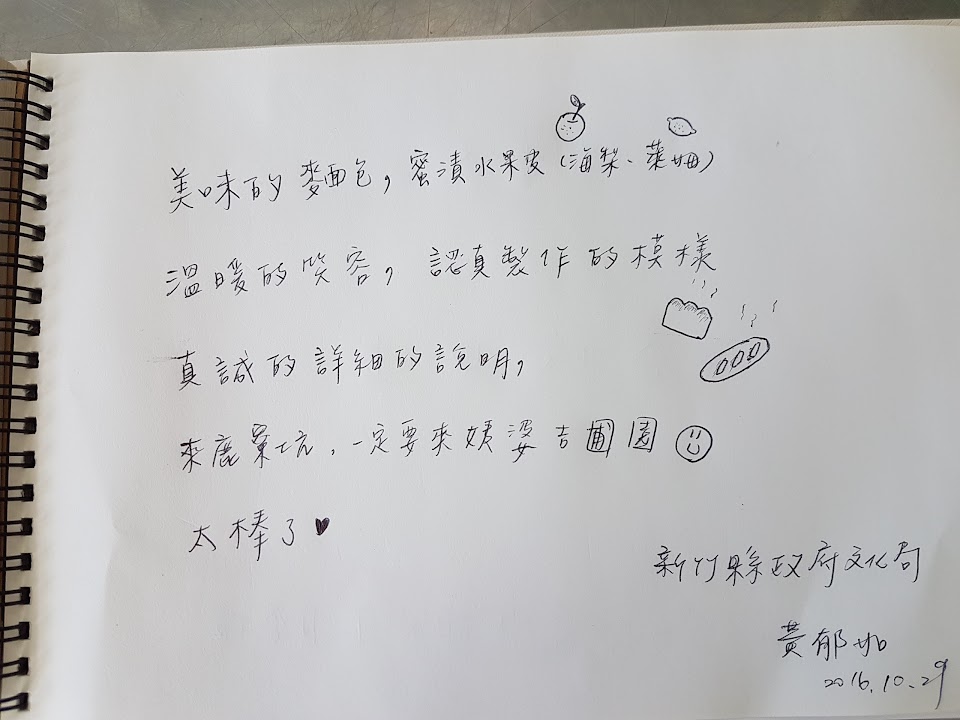 美味的麵包,蜜漬水果皮(海梨、萊姆)
溫暖的笑容,認真製作的模樣
真誠的詳細的說明,
來鹿寮坑,一定要來姨婆吉圃園
太棒了♥
新竹縣政府文化局
黃郁如
2016.10.29